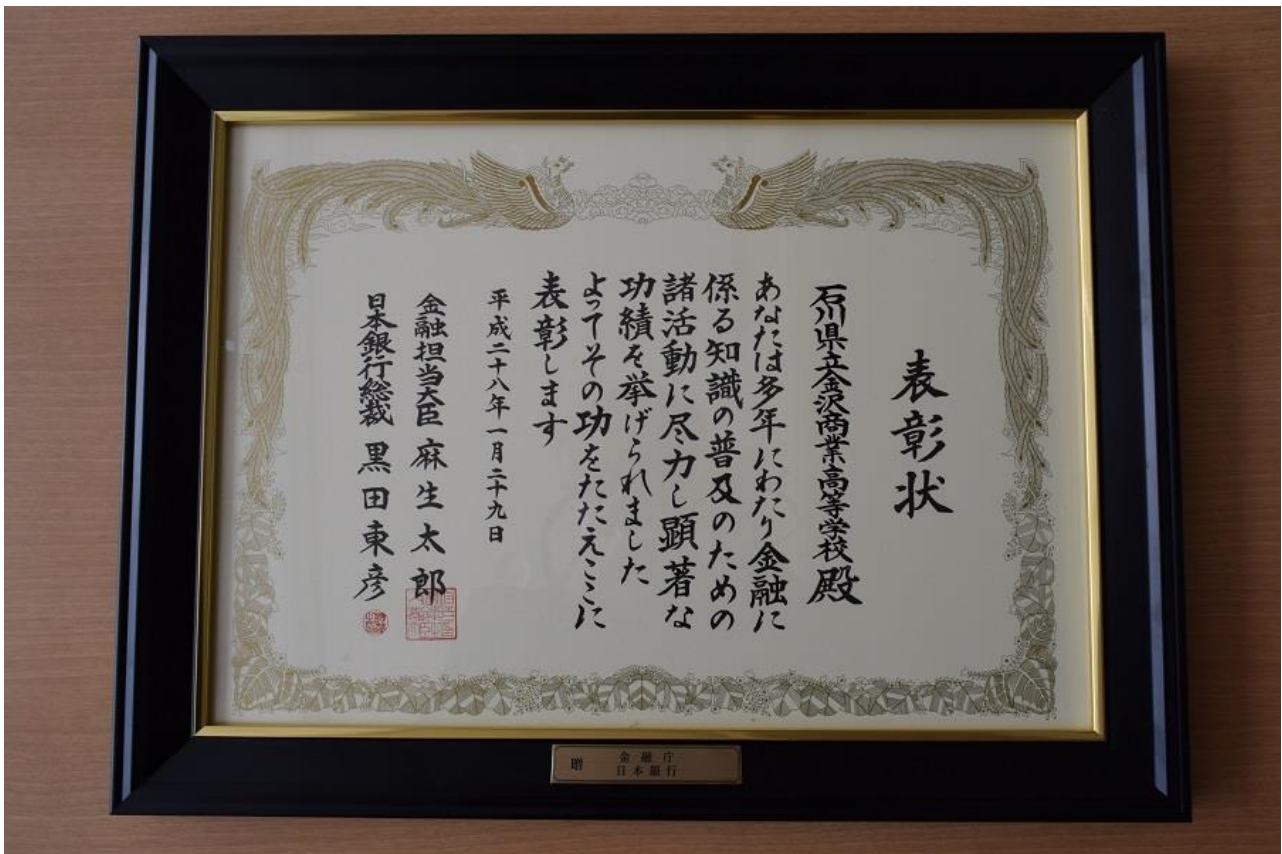 表彰状
石川県立金沢商業高等学校殿
あなたは多年にわたり金融に
係る知識の普及のための
諸活動に尽力し顕著な
功績を挙げられました
よってその功をたたえここに
表彰します
平成二十八年一月二十九日
金融担当大臣 麻生太郎
日本銀行総裁 黒田東彦
贈 金融庁
日本銀行